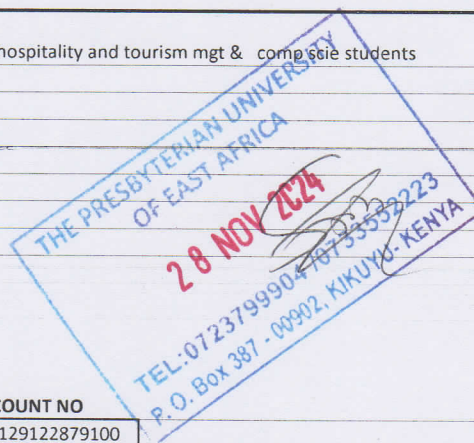 hospitality and tourism mgt & comp scie students
THE PRESBYTERIAN UNIVERSITY
OF EAST AFRICA
28 NOV 2024
TEL:0723799904 /0733553223
P. O. Box 387 - 00902, KIKUYU- KENYA
COUNT NO
129122879100